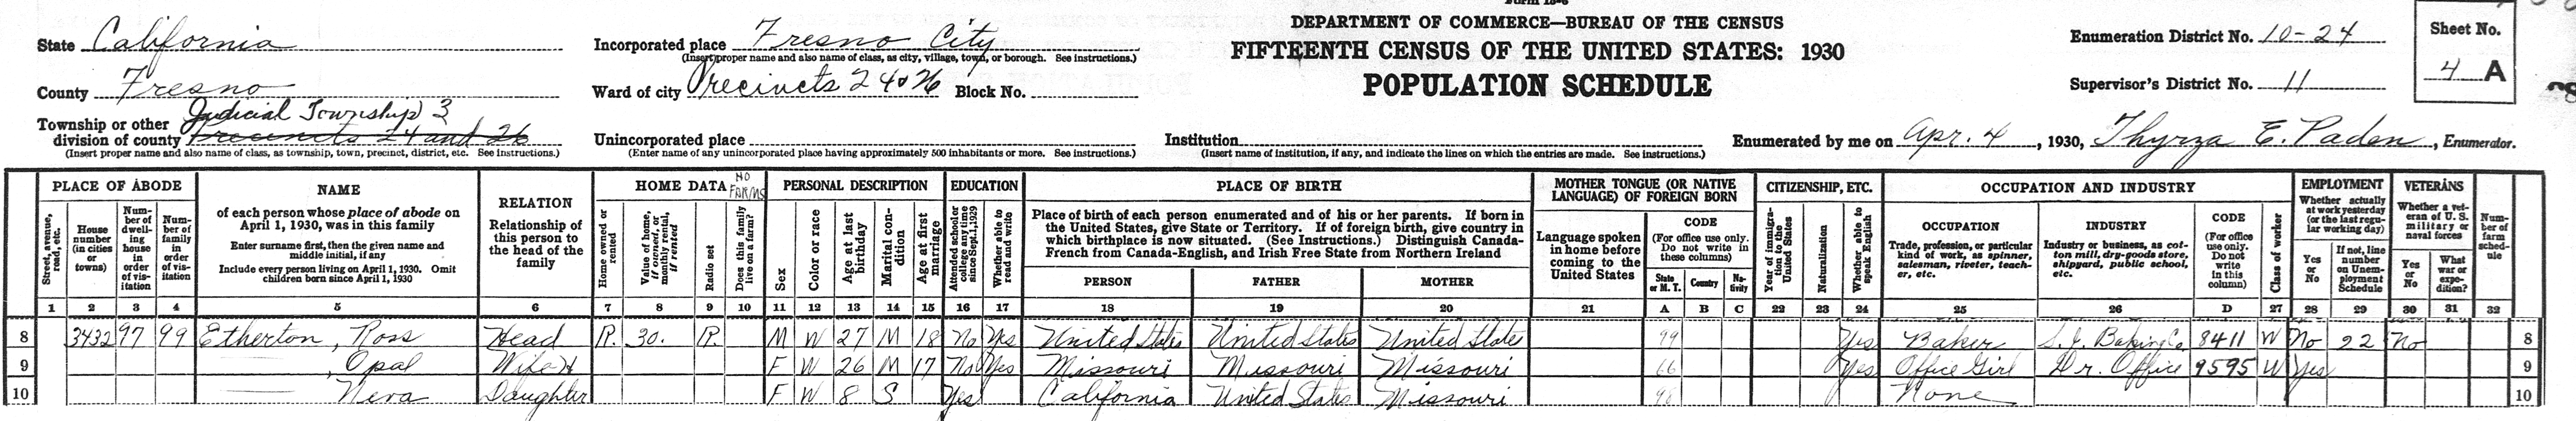 DEPARTMENT OF COMMERCE—BUREAU OF THE CENSUS
FIFTEENTH CENSUS OF THE UNITED STATES: 1930
POPULATION SCHEDULE
State California
County Fresno
Judicial Township 3
Township or other division of county Precincts 24 and 26
(Insert proper name and also name of class, as township, town, precinct, district, etc. See instructions.)
Incorporated place Fresno City
(Insert proper name and also name of class, as city, village, town, or borough. See instructions.)
Ward of city Precincts 24 & 26 Block No.
Unincorporated place
(Enter name of any unincorporated place having approximately 500 inhabitants or more. See instructions.)
Institution
(Insert name of institution, if any, and indicate the lines on which the entries are made. See instructions.)
Enumeration District No. 10-24
Supervisor's District No. 11
Sheet No.
4 A
Enumerated by me on Apr. 4, 1930, Thyrza E. Paden, Enumerator.
PLACE OF ABODE
Street, avenue, road, etc.
House number (in cities or towns)
Number of dwelling house in order of visitation
Number of family in order of visitation
NAME
of each person whose place of abode on April 1, 1930, was in this family
Enter surname first, then the given name and middle initial, if any
Include every person living on April 1, 1930. Omit children born since April 1, 1930
RELATION
Relationship of this person to the head of the family
HOME DATA
NO FARMS
Home owned or rented
Value of home, if owned, or monthly rental, if rented
Radio set
Does this family live on a farm?
PERSONAL DESCRIPTION
Sex
Color or race
Age at last birthday
Marital condition
Age at first marriage
EDUCATION
Attended school or college any time since Sept. 1, 1929
Whether able to read and write
PLACE OF BIRTH
Place of birth of each person enumerated and of his or her parents. If born in the United States, give State or Territory. If of foreign birth, give country in which birthplace is now situated. (See Instructions.) Distinguish Canada-French from Canada-English, and Irish Free State from Northern Ireland
PERSON
FATHER
MOTHER
MOTHER TONGUE (OR NATIVE LANGUAGE) OF FOREIGN BORN
Language spoken in home before coming to the United States
CODE
(For office use only. Do not write in these columns)
State or M. T.
Country
Nativity
CITIZENSHIP, ETC.
Year of immigration to the United States
Naturalization
Whether able to speak English
OCCUPATION AND INDUSTRY
OCCUPATION
Trade, profession, or particular kind of work, as spinner, salesman, riveter, teacher, etc.
INDUSTRY
Industry or business, as cotton mill, dry-goods store, shipyard, public school, etc.
CODE
(For office use only. Do not write in this column)
Class of worker
EMPLOYMENT
Whether actually at work yesterday (or the last regular working day)
Yes or No
If not, line number on Unemployment Schedule
VETERANS
Whether a veteran of U. S. military or naval forces
Yes or No
What war or expedition?
Number of farm schedule
1 2 3 4 5 6 7 8 9 10 11 12 13 14 15 16 17 18 19 20 21 A B C 22 23 24 25 26 D 27 28 29 30 31 32
8 3432 97 99 Etherton, Ross Head R. 30. R. M W 27 M 18 No Yes United States United States United States 99 Yes Baker S.J. Baking Co. 8411 W No 22 No 8
9 ——, Opal Wife H F W 26 M 17 No Yes Missouri Missouri Missouri 66 Yes Office Girl Dr. Office 9595 W Yes 9
10 —— Neva Daughter F W 8 S Yes California United States Missouri 98 None 10